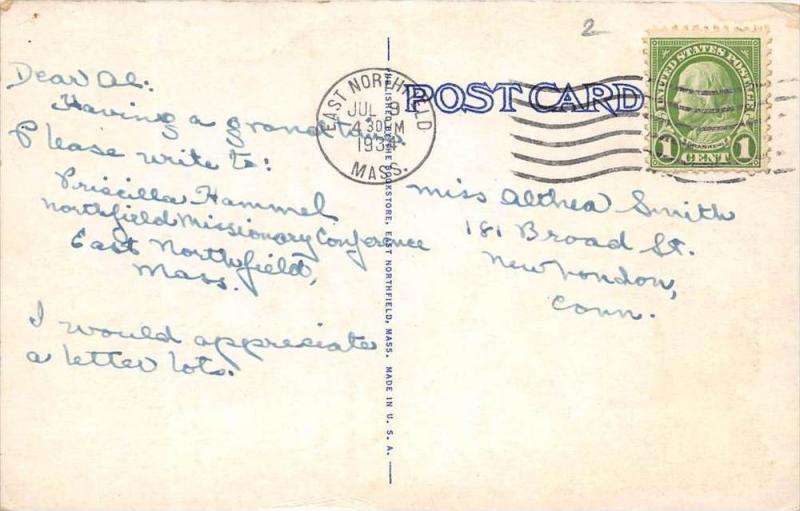 2
Dear Al:
Having a grand time.
Please write to:
Priscilla Hammel
Northfield Missionary Conference
East Northfield,
Mass.
I would appreciate
a letter lots.
EAST NORTHFIELD
JUL 9
4 30 PM
1934
MASS.
POST CARD
UNITED STATES POSTAGE
FRANKLIN
1 CENT 1
Miss Althea Smith
181 Broad St.
New London,
Conn.
PUBLISHED BY THE BOOKSTORE, EAST NORTHFIELD, MASS. MADE IN U. S. A.